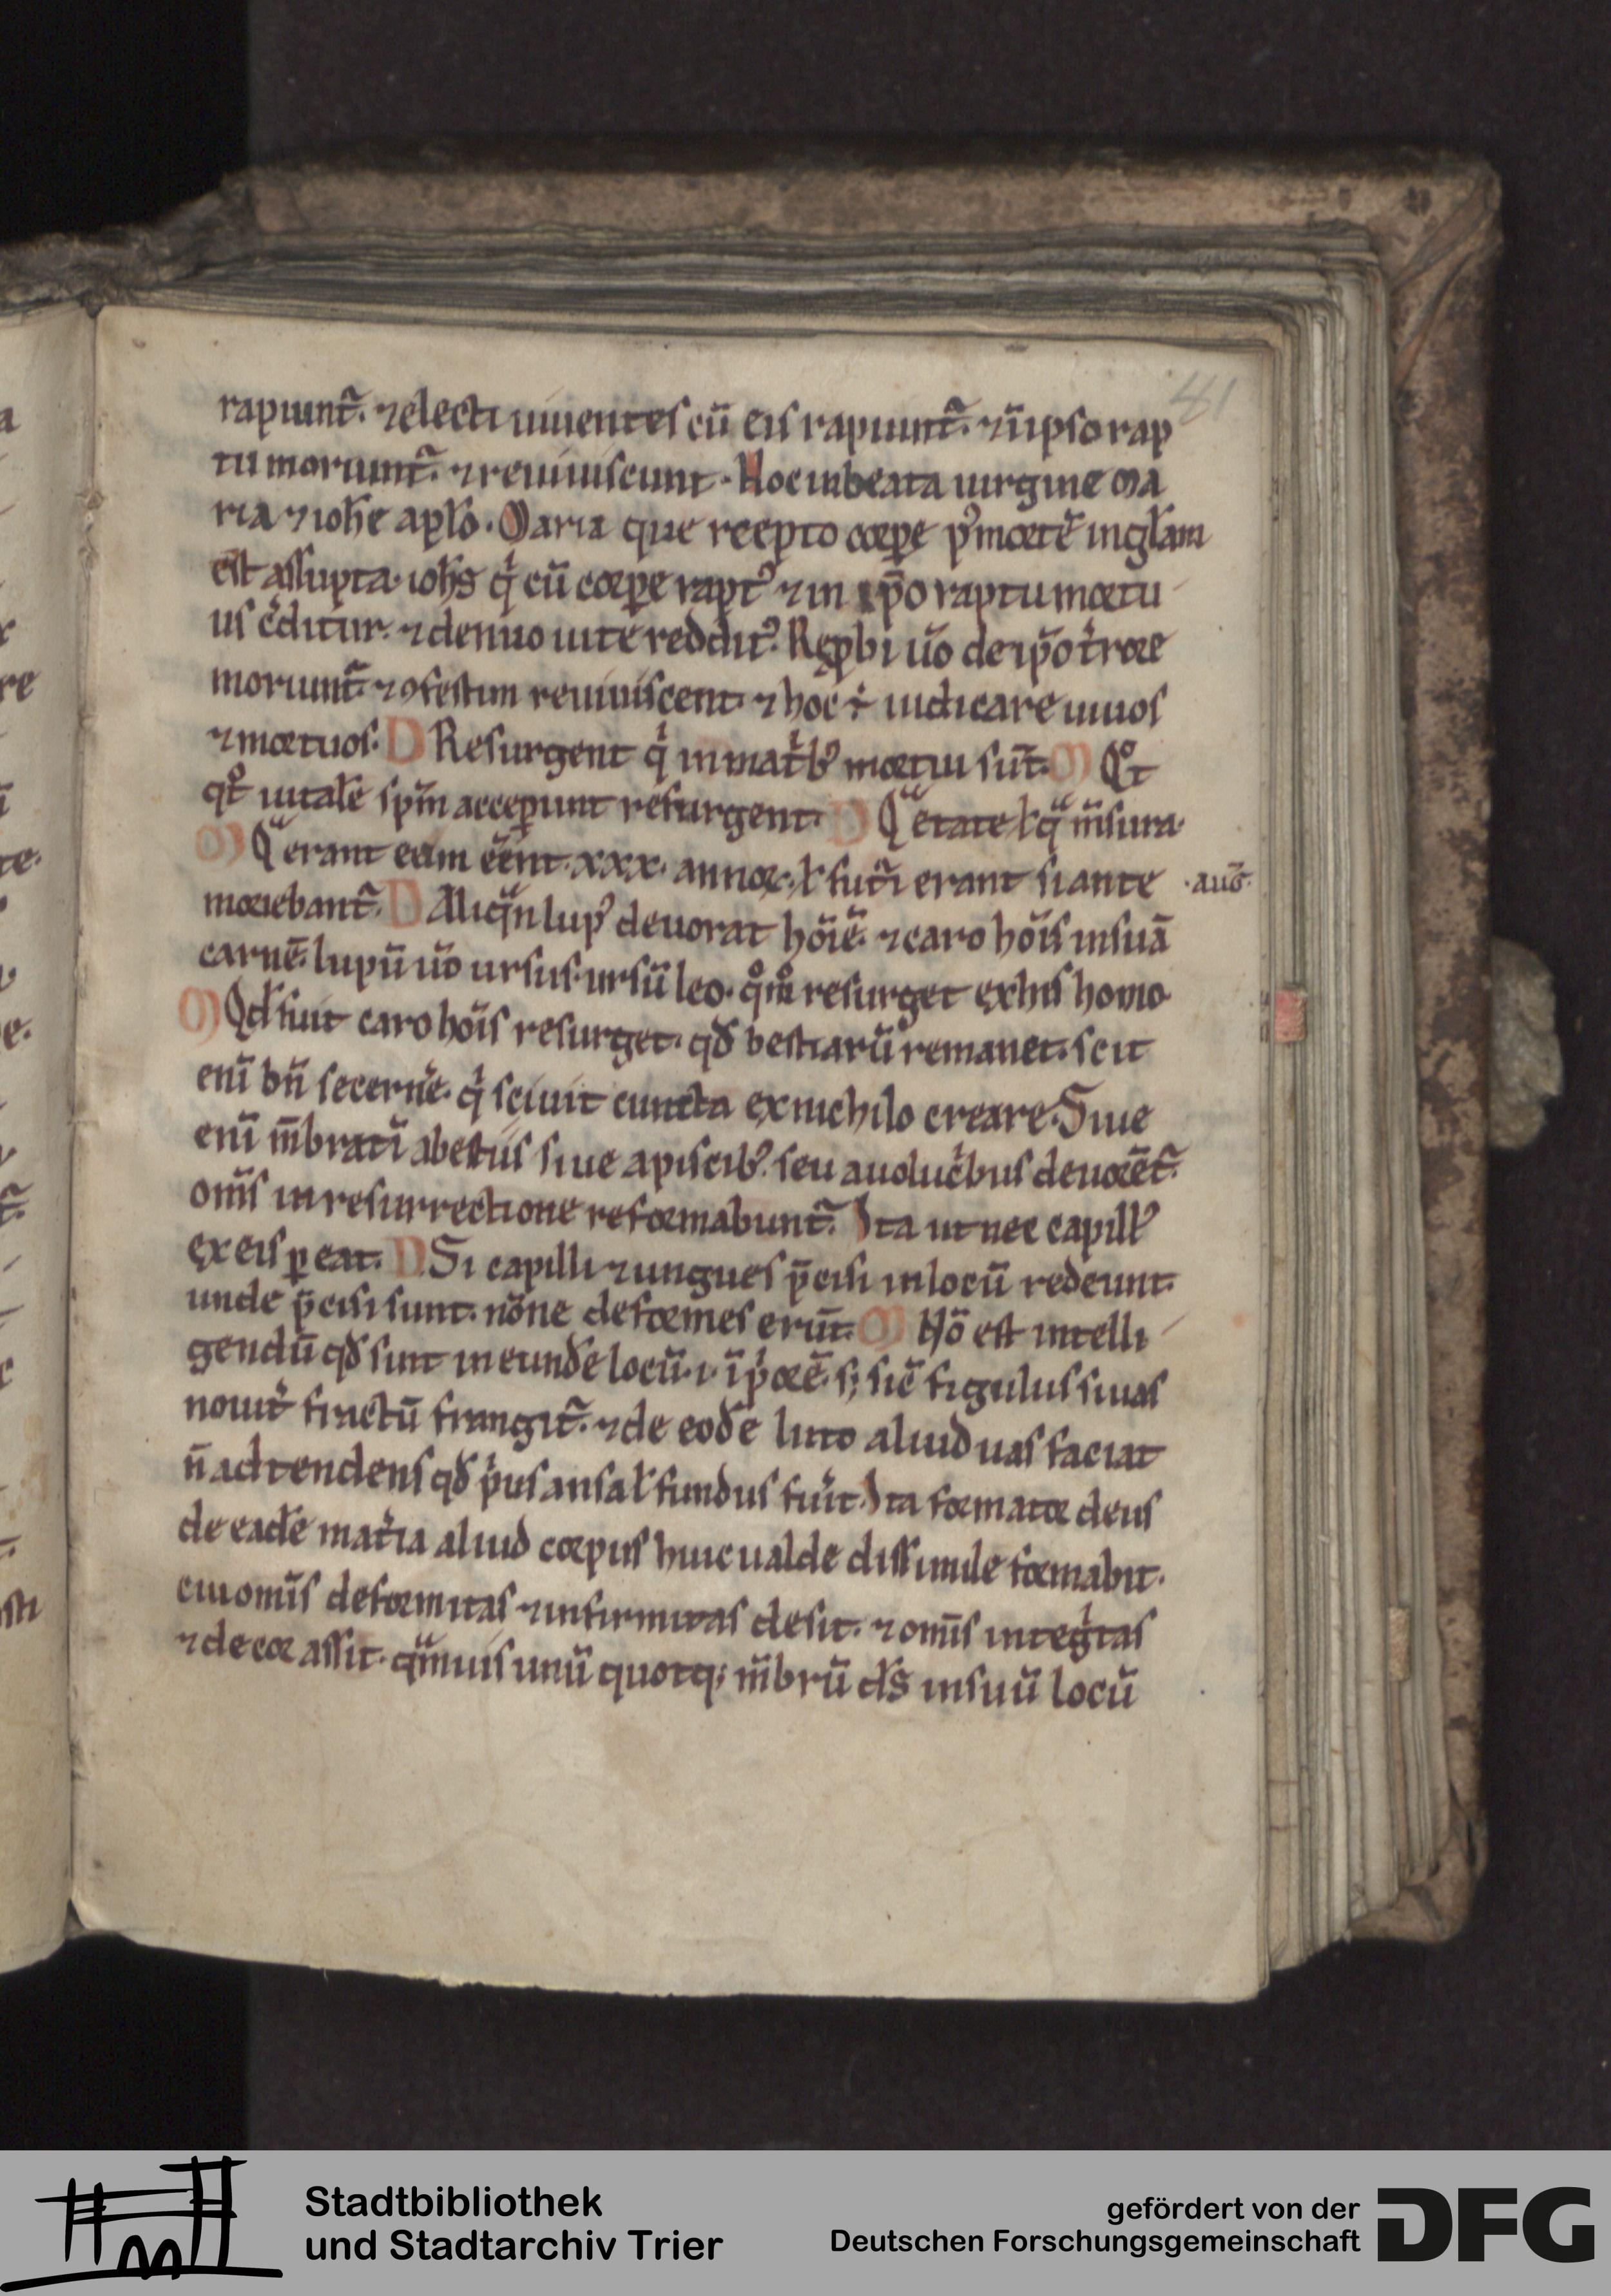 41
rapiunt᷑. ⁊ electi uiuentes cū eis rapiunt᷑. ⁊ ī ipso rap
tu moriunt᷑. ⁊ reuiuiscunt. Hoc in beata uirgine Ma
ria ⁊ ioh̄e aplo. Maria que recepto corpe pꝰ mortē in gl̄am
est assupta. ioh̄s qͥ cū corpe raptꝰ ⁊ in ipō raptu mortu
us c̄ditur. ⁊ denuo uite reddit᷑. Rep̱bi uō de ip̄o t̄rore
moriunt᷑ ⁊ ꝯfestim reuiuiscent. ⁊ hoc ÷ iudicare uiuos
⁊ mortuos. D Resurgent qͥ in mat̄bꝰ mortui sūt. M Qͦt
qͦt uitale sp̄m acceperunt resurgent. D Qᵃ etate ł qᵃ m̄sura.
M Qᵃ erant cum eēnt .xxx. annoꝝ. ł futi erant si ante
.auḡ.
moriebant᷑. D Aliqᵃn lupꝰ deuorat hōiē. ⁊ caro hōis in suā
carnē. lupū uō ursus. ursū leo. qͦm̊ resurget ex his homo.
M Qd̄ fuit caro hōis resurget. qd̄ bestiarū remanet. scit
enī bn̄ secernē. qͥ sciuit cuncta ex nichilo creare. Siue
enī m̄bratī a bestiis siue a piscibꝰ. seu a uolucbus deuorēt᷑.
om̄s in resurrectione reformabunt᷑. Ita ut nec capillꝰ
ex eis ꝑeat. D Si capilli ⁊ ungues p̄cisi in locū redeunt.
unde p̄cisi sunt. nōne deformes erūt. M Nō est intelli
gendū qd̄ sint in eunde locū .i. ī pͥorē. sꝫ sic̄ figulus si uas
nouit̄ finctū frangit᷑. ⁊ de eode luto aliud uas faciat
n̄ adtendens qd̄ pͥus ansa ł fundus fuit̄. Ita formator deus
de eade mat̄ia aliud corpus huic ualde dissimile formabit.
cui om̄is deformitas ⁊ infirmitas desit. ⁊ om̄is integͥtas
⁊ decor assit. qᵃmuis unū quotqꝫ m̄brū d̄s in suū locū
Stadtbibliothek
und Stadtarchiv Trier
gefördert von der
Deutschen Forschungsgemeinschaft
DFG